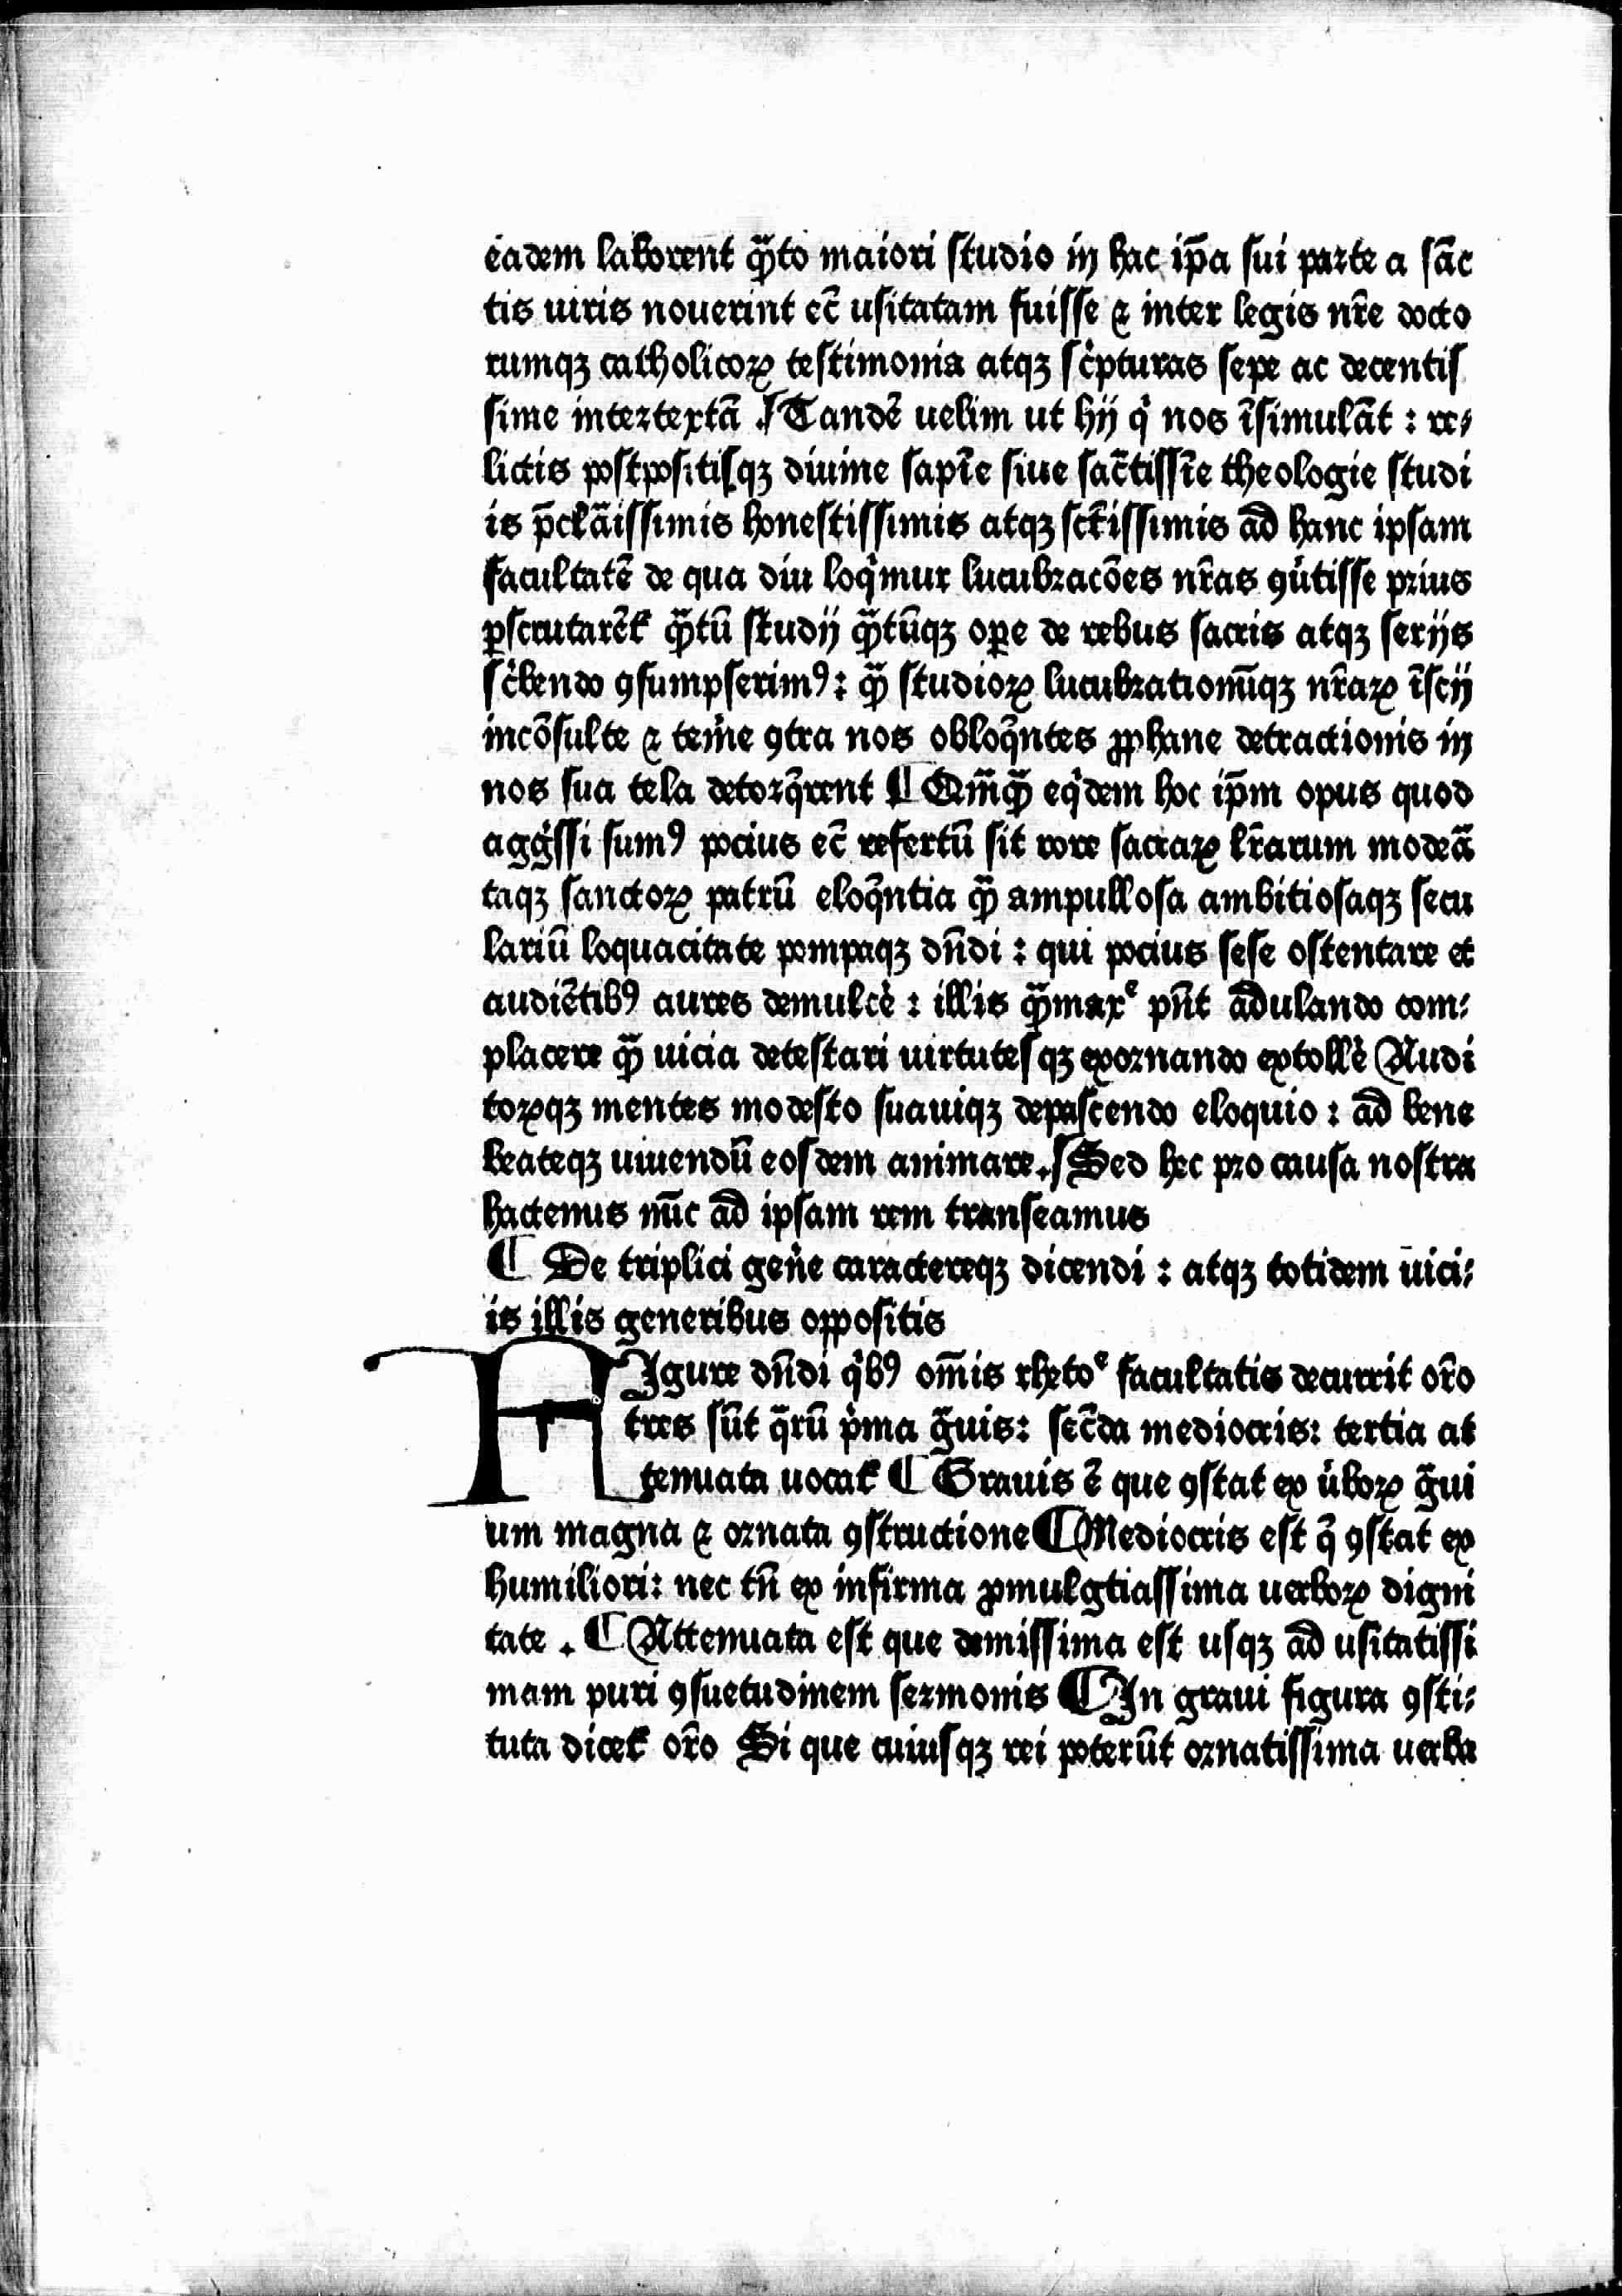 eadem laborent qͣ̄to maiori studio in hac ip̄a sui parte a sāc
tis uiris nouerint ec̄ usitatam fuisse ⁊ inter legis nr̄e docto
rumqꝫ catholicoꝝ testimonia atqꝫ sc̍pturas sepe ac decentis
sime intertextā ./ Tandē uelim ut hij q̍ nos īsimulāt : re⸗
lictis postpositisqꝫ diuine sapīe siue sac̄tissīe theologie studi
is p̄clāissimis honestissimis atqꝫ sct̄issimis ad hanc ipsam
facultatē de qua diu loq̍mur lucubracōes nr̄as ꝯu̍tisse prius
ꝑscrutarēt᷑ qͣ̄tū studij qͣ̄tūqꝫ oꝑe de rebus sacris atqꝫ serijs
sc̍bendo ꝯsumpserimꝰ : qͣ̄ studioꝝ lucubrationūqꝫ nr̄aꝝ īscij
incōsulte ⁊ tem̍e ꝯtra nos obloq̄ntes ꝓphane detractionis in
nos sua tela detorq̄rent ¶ Qm̄qͣ̄ eq̍dem hoc ip̄m opus quod
aggs̍si sumꝰ pocius ec̄ refertū sit rore sacraꝝ lr̄arum modeā
taqꝫ sanctoꝝ patrū eloq̄ntia qͣ̄ ampullosa ambitiosaqꝫ secu
lariū loquacitate pompaqꝫ dn̄di : qui pocius sese ostentare et
audiētibꝰ aures demulce̍ : illis qͣ̄maxᵉ pn̄t adulando com⸗
placere qͣ̄ uicia detestari uirtutesqꝫ exornando extolle̍ Audi
toꝝqꝫ mentes modesto suauiqꝫ depascendo eloquio : ad bene
beateqꝫ uiuendū eosdem animare ./ Sed hec pro causa nostra
hactenus nūc ad ipsam rem transeamus
¶ De triplici gen̍e caractereqꝫ dicendi : atqꝫ totidem uici⸗
is illis generibus oppositis
FIgure dn̄di q̍bꝰ om̄is rhetoᵉ facultatis decurrit or̄o
tres sūt qͣrū p̍ma gͣuis : sec̄da mediocris : tertia at
tenuata uocat᷑ ¶ Grauis ē que ꝯstat ex u̍boꝝ gͣui
um magna ⁊ ornata ꝯstructione ¶ Mediocris est q̄ ꝯstat ex
humiliori : nec tn̄ ex infirma ꝓmulgtiassima uerboꝝ digni
tate . ¶ Attenuata est que demissima est usqꝫ ad usitatissi
mam puri ꝯsuetudinem sermonis ¶ In graui figura ꝯsti⸗
tuta dicet᷑ or̄o Si que cuiusqꝫ rei poterūt ornatissima uerba